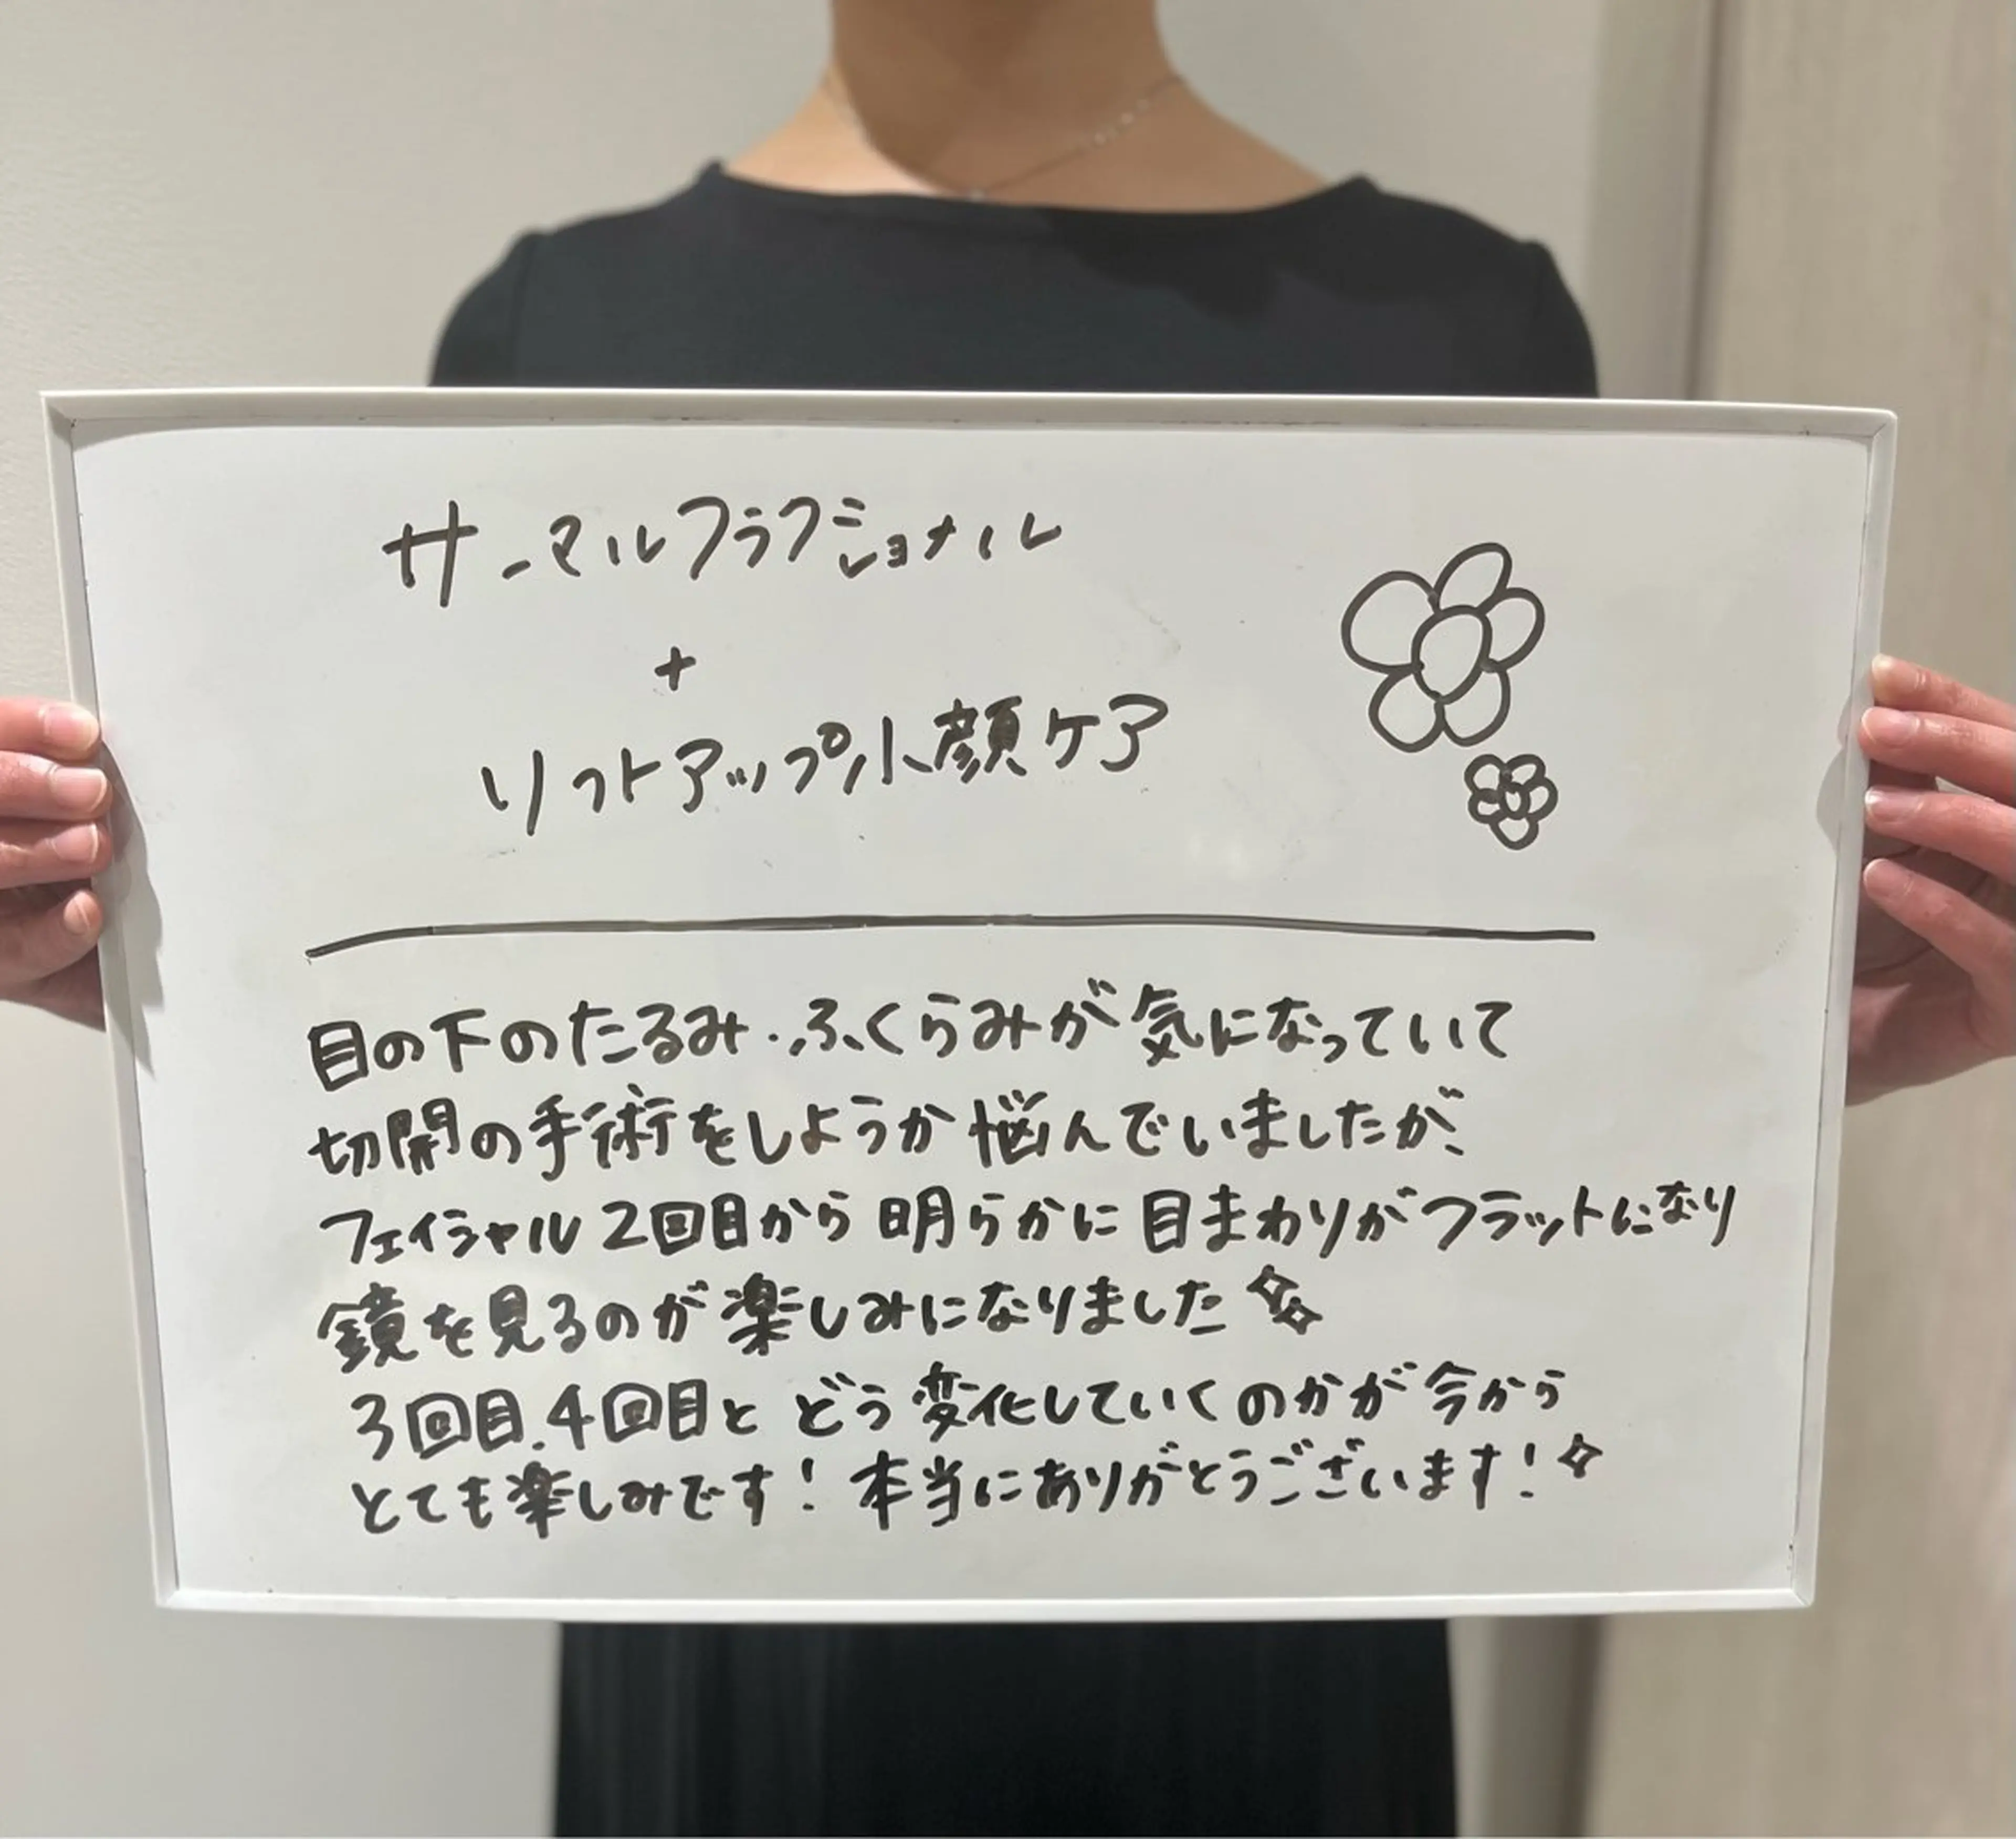 サーマルフラクショナル
+
リフトアップ小顔ケア
目の下のたるみ・ふくらみが気になっていて
切開の手術をしようか悩んでいましたが、
フェイシャル2回目から明らかに目まわりがフラットになり
鏡を見るのが楽しみになりました
3回目、4回目とどう変化していくのかが今から
とても楽しみです！本当にありがとうございます！